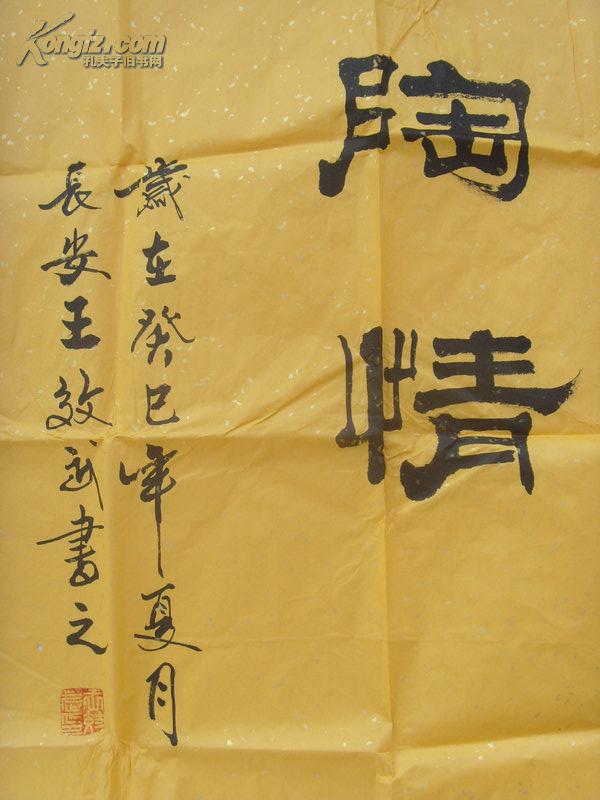 Kongfz.com
孔夫子旧书网
陶情
歲在癸巳年夏月
長安王效武書之